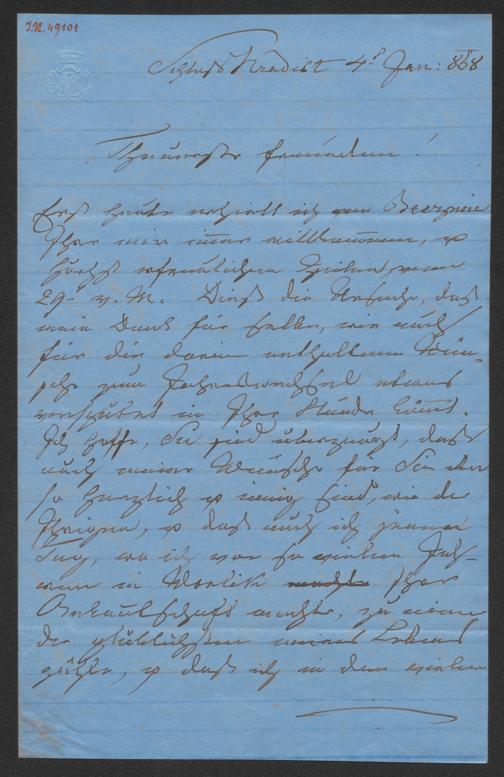 I.N. 49101
Schloß Hradist 4t Jan: 868
Theuerste Freundin!
Erst heute erhielt ich von Brezinie
Ihre mir immer willkommenen, u
höchst erfreulichen Zeilen vom
29. v. M. Dieß die Ursache, daß
mein Dank für selbe, wie auch
für die darin enthaltenen Wün-
sche zum Jahreswechsel etwas
verspätet in Ihre Hände kömt.
Ich hoffe, Sie sind überzeugt, daß
auch meine Wünsche für Sie
so herzlich u innig sind, wie die
Ihrigen, u daß auch ich jenen
Tag, wo ich vor so vielen Jah-
ren in Worlik machte Ihre
Bekantschaft machte, zu einen
der glüklichsten meines Lebens
zähle, u daß ich in den vielen